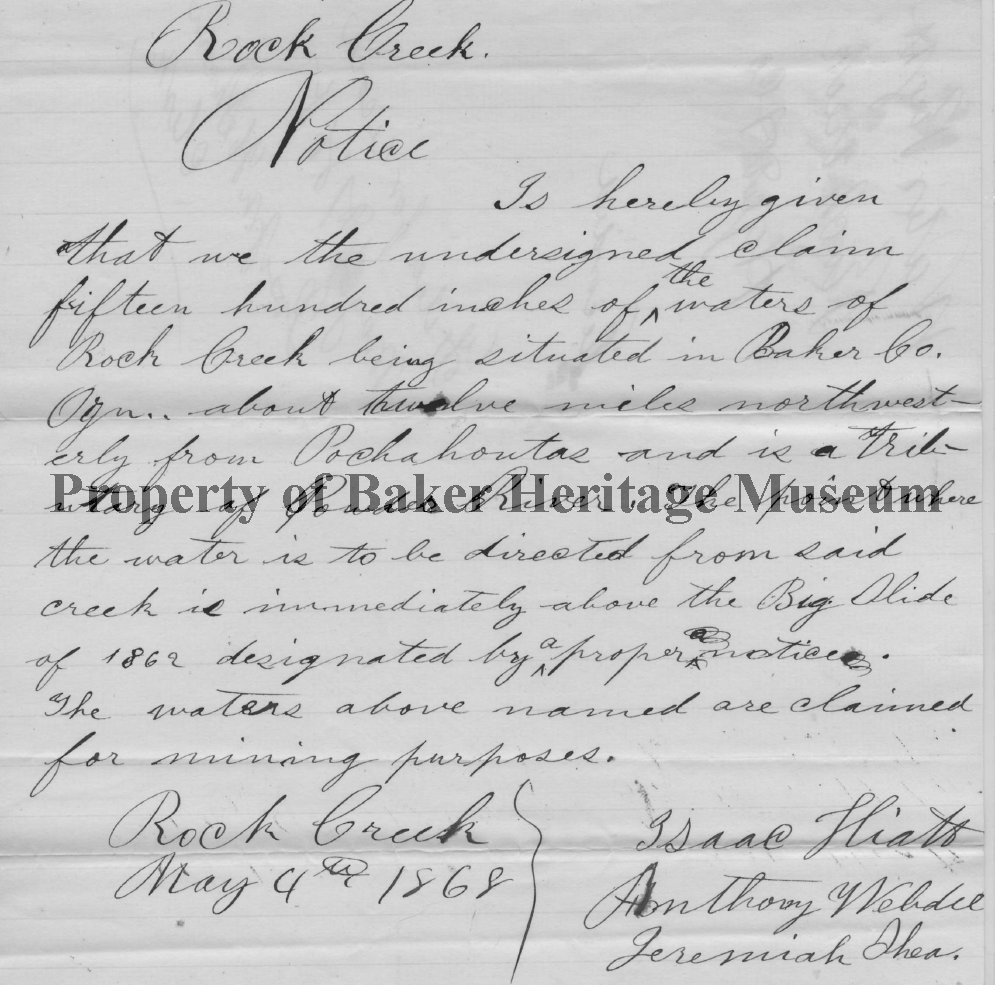 Rock Creek.
Notice
Is hereby given
that we the undersigned claim
fifteen hundred inches of ^the waters of
Rock Creek being situated in Baker Co.
Ogn.. about twelve miles northwest-
erly from Pochahontas and is a trib-
utary of Powder River. The point where
Property of Baker Heritage Museum
the water is to be directed from said
creek is immediately above the Big Slide
of 1862 designated by ^a proper notice.
The waters above named are claimed
for mining purposes.
Rock Creek
May 4th 1868
Isaac Hiatt
Anthony
Jeremiah Shea.